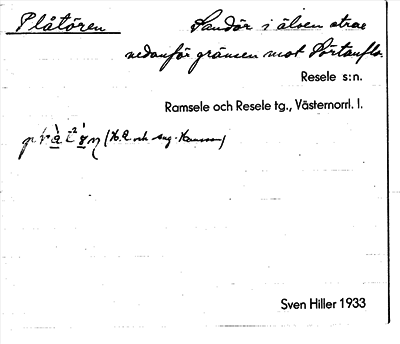 Plåtören Sandör i älven strax
nedanför gränsen mot Sörtanflo.
Resele s:n.
Ramsele och Resele tg., Västernorrl. l.
och Aug. Hansson)
Sven Hiller 1933